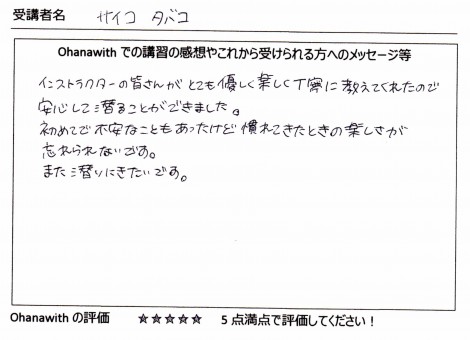 受講者名 サイコ タバコ
Ohanawith での講習の感想やこれから受けられる方へのメッセージ等
インストラクターの皆さんがとても優しく楽しく丁寧に教えてくれたので
安心して潜ることができました。
初めてで不安なこともあったけど慣れてきたときの楽しさが
忘れられないです。
また潜りにきたいです。
Ohanawith の評価 ☆☆☆☆☆ 5点満点で評価してください！